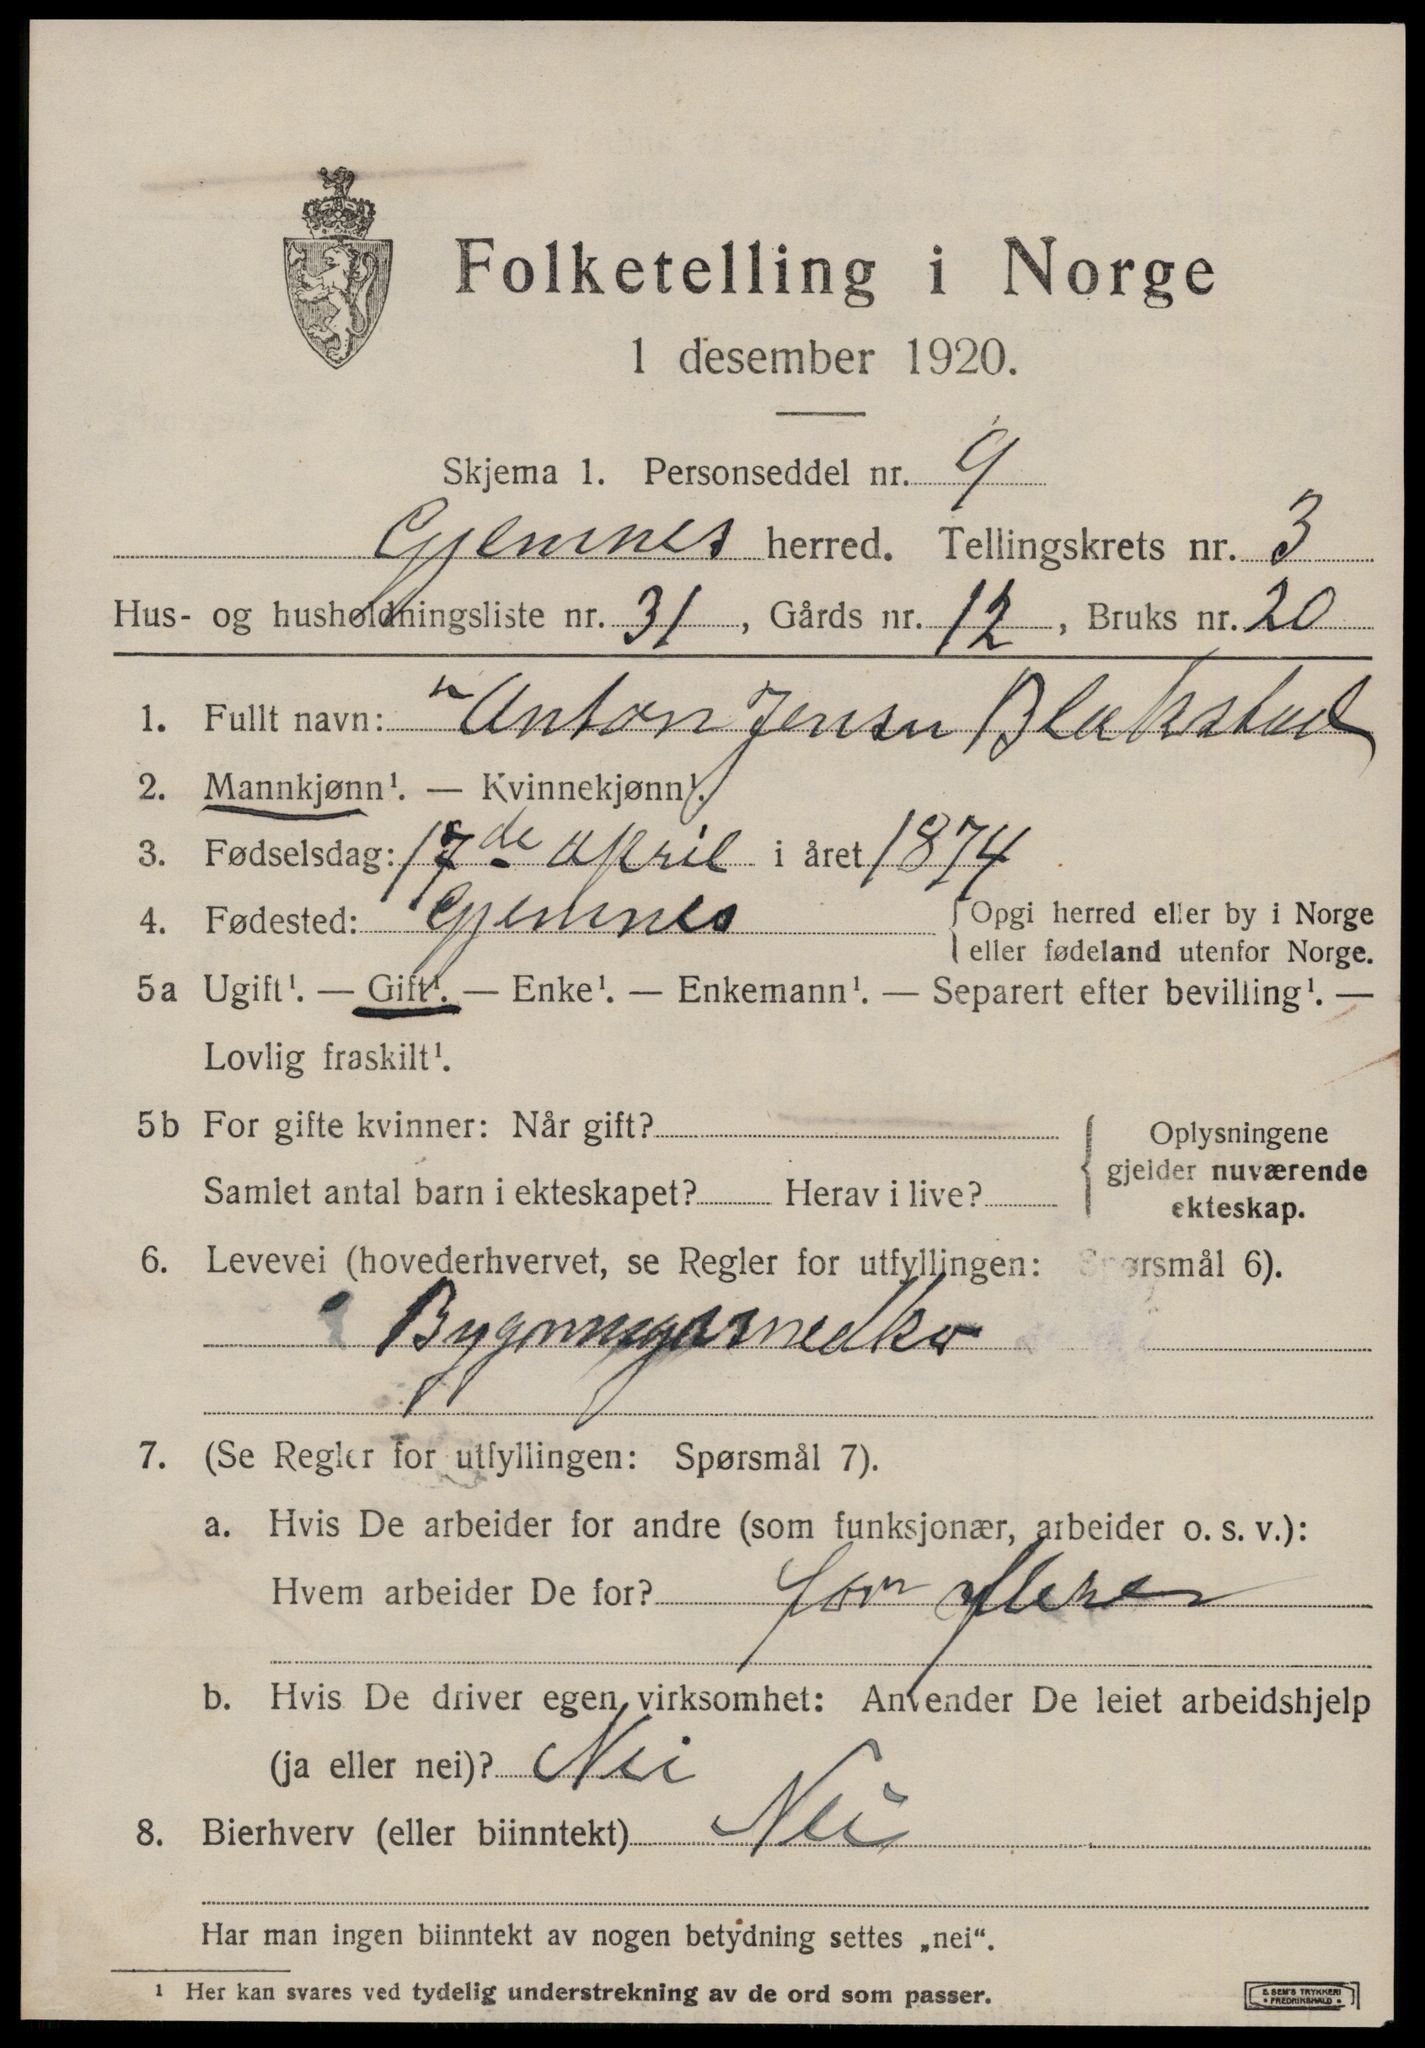 Folketelling i Norge
1 desember 1920.
Skjema 1. Personseddel nr. 9
Gjemnes herred. Tellingskrets nr. 3
Hus- og husholdningsliste nr. 31, Gårds nr. 12, Bruks nr. 20
1. Fullt navn: Anton Jensen Blakstad
2. Mannkjønn¹. — Kvinnekjønn¹.
3. Fødselsdag: 17de april i året 1874
4. Fødested: Gjemnes {Opgi herred eller by i Norge
eller fødeland utenfor Norge.
5a Ugift¹. — Gift¹. — Enke¹. — Enkemann¹. — Separert efter bevilling¹. —
Lovlig fraskilt¹.
5b For gifte kvinner: Når gift?
Samlet antal barn i ekteskapet? Herav i live?
Oplysningene
gjelder nuværende
ekteskap.
6. Levevei (hovederhvervet, se Regler for utfyllingen: Spørsmål 6).
7. (Se Regler for utfyllingen: Spørsmål 7).
a. Hvis De arbeider for andre (som funksjonær, arbeider o. s. v.):
Hvem arbeider De for? for flere
b. Hvis De driver egen virksomhet: Anvender De leiet arbeidshjelp
(ja eller nei)? Nei
8. Bierhverv (eller biinntekt) Nei
Har man ingen biinntekt av nogen betydning settes „nei“.
¹ Her kan svares ved tydelig understrekning av de ord som passer.
E. SEM'S TRYKKERI
• FREDRIKSHALD •